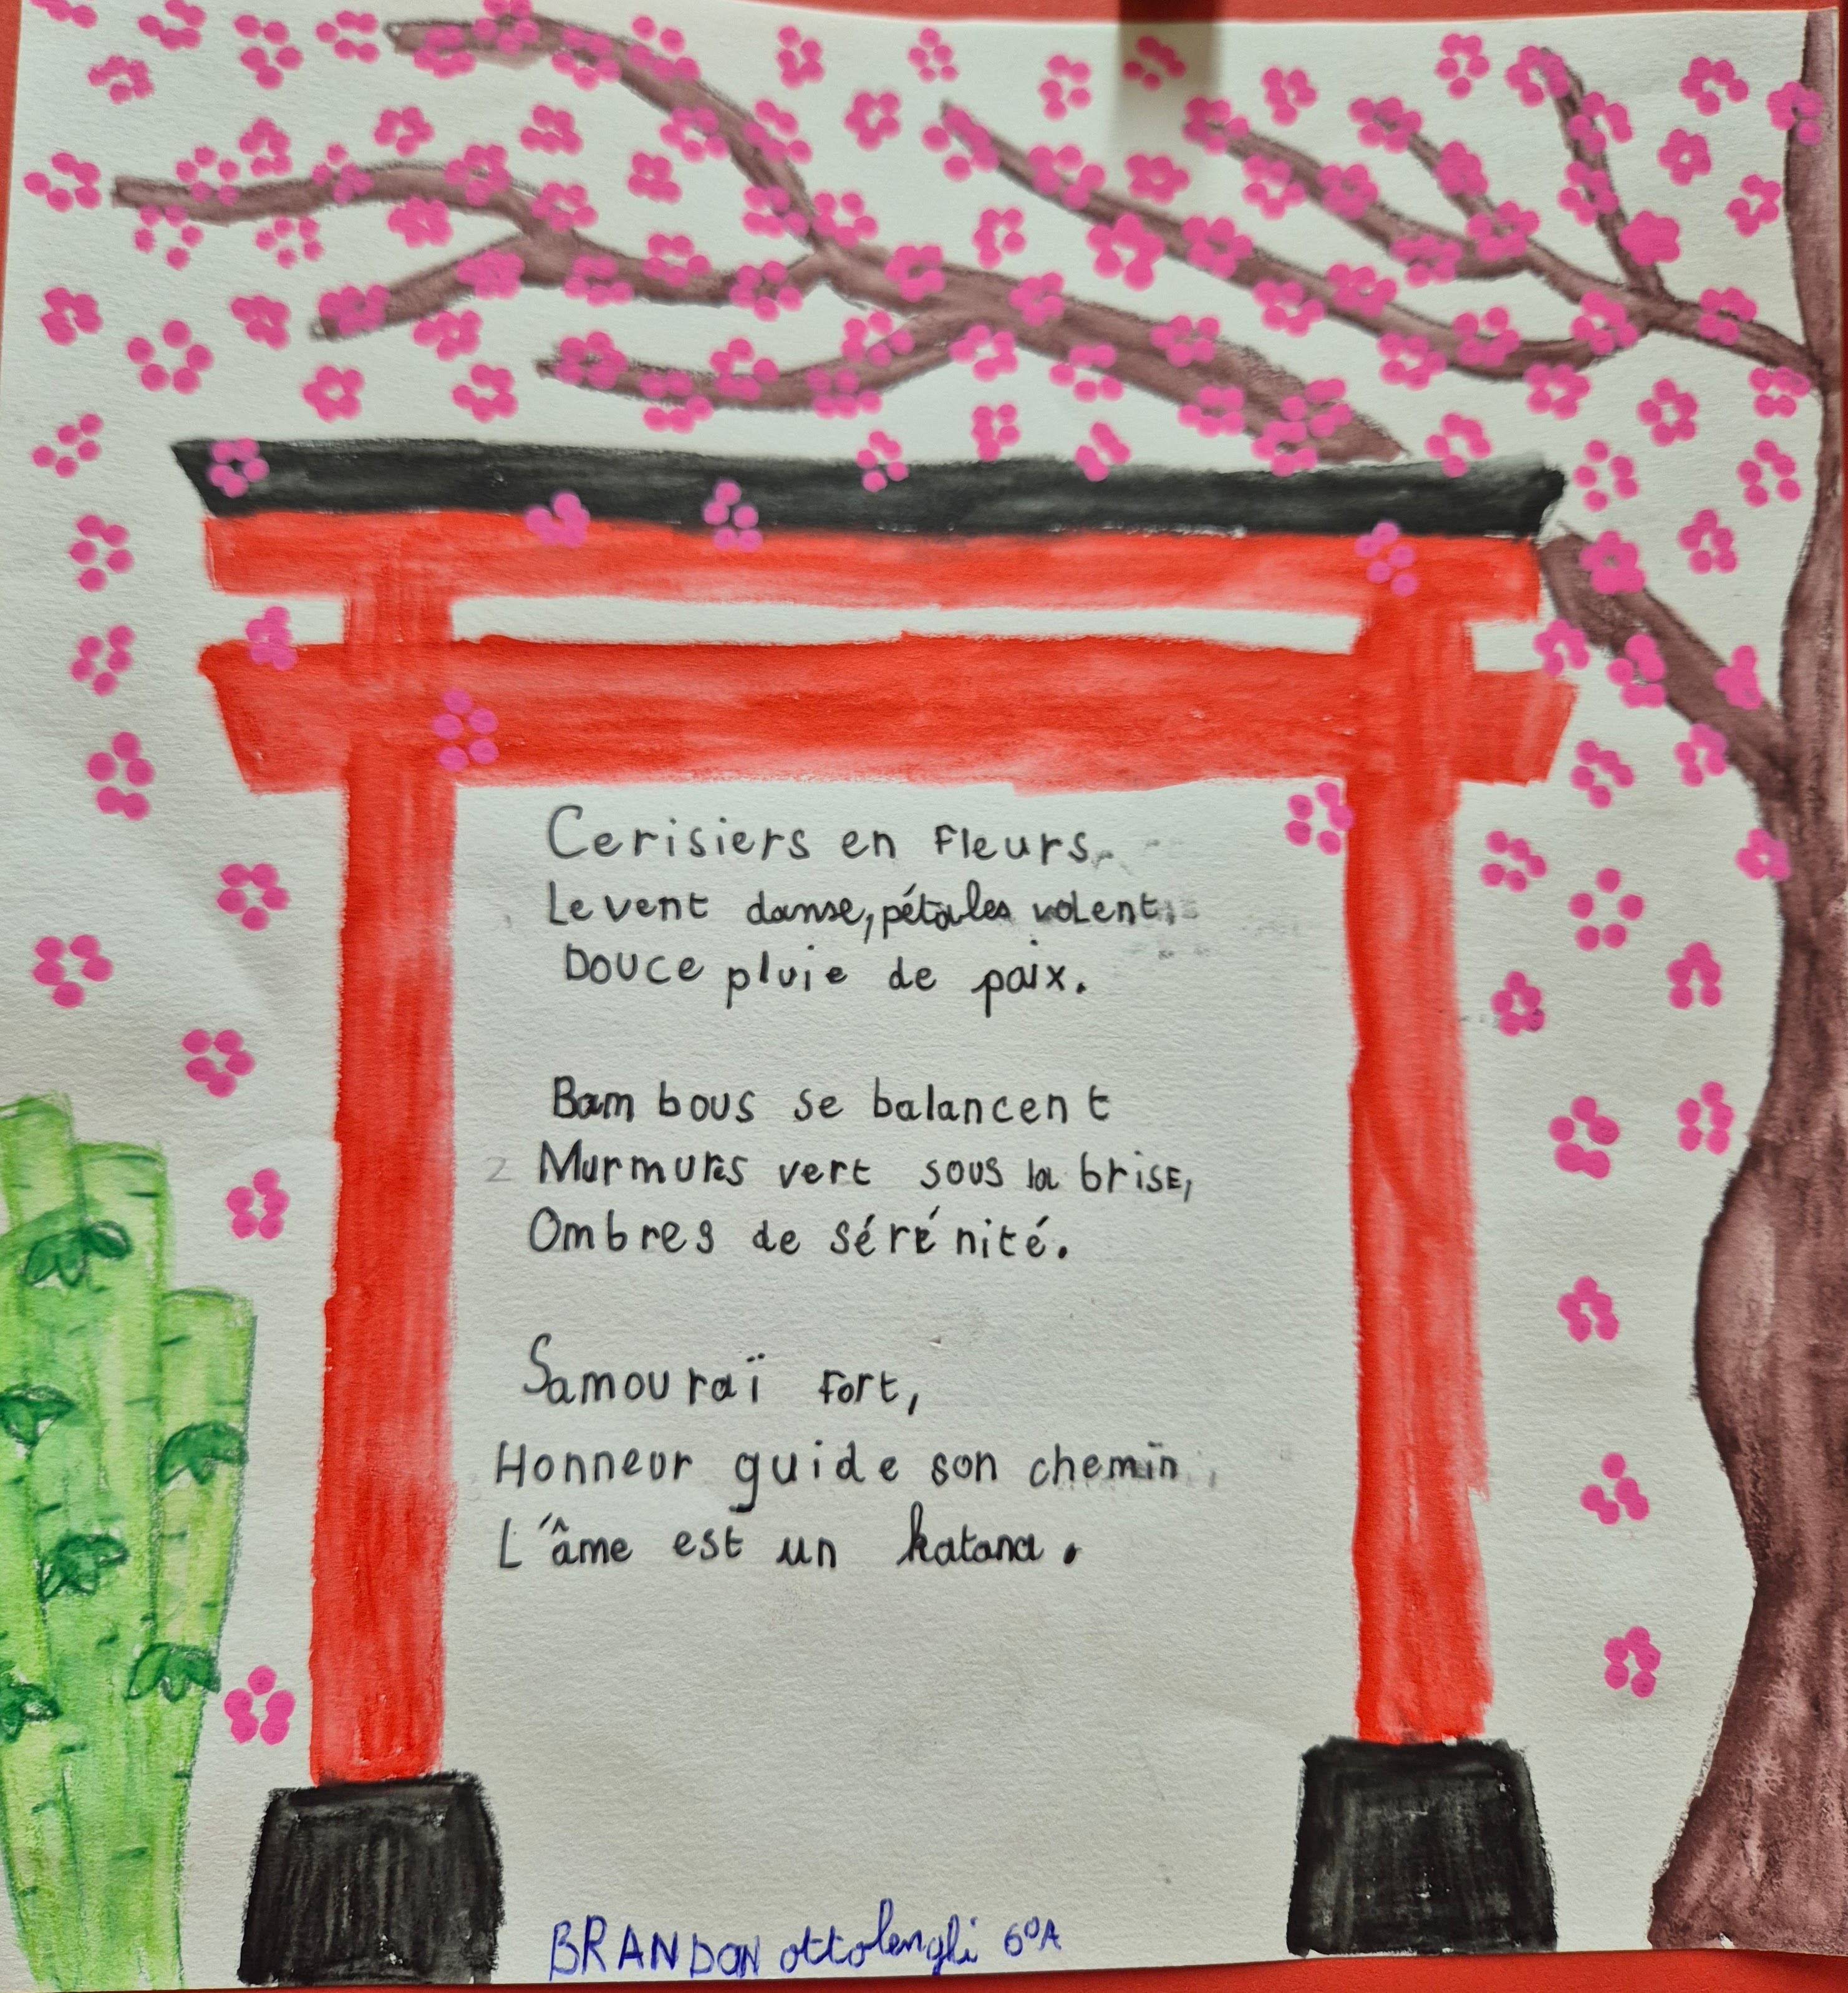 Cerisiers en Fleurs,
Le vent danse, pétales volent,
Douce pluie de paix.
Bambous se balancent
Murmures vert sous la brise,
Ombres de sérénité.
Samouraï Fort,
Honneur guide son chemin
L'âme est un katana.
BRANDON ottolenghi 6°A